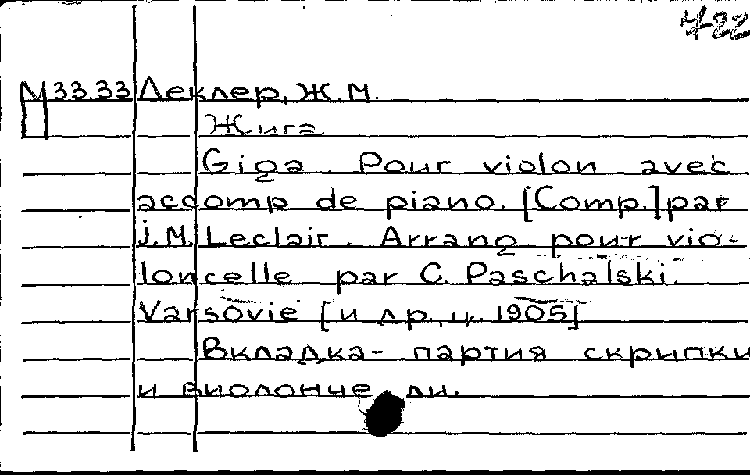 722
М 33.33 Леклер, Ж.М.
Жига
Giga. Pour violon avec
accomp de piano. [Comp.] par
J.M. Leclair. Arrang pour vio-
loncelle par C. Paschalski.
Varsovie [и др., ц. 1905]
Вкладка- партия скрипки
и виолонче ли.